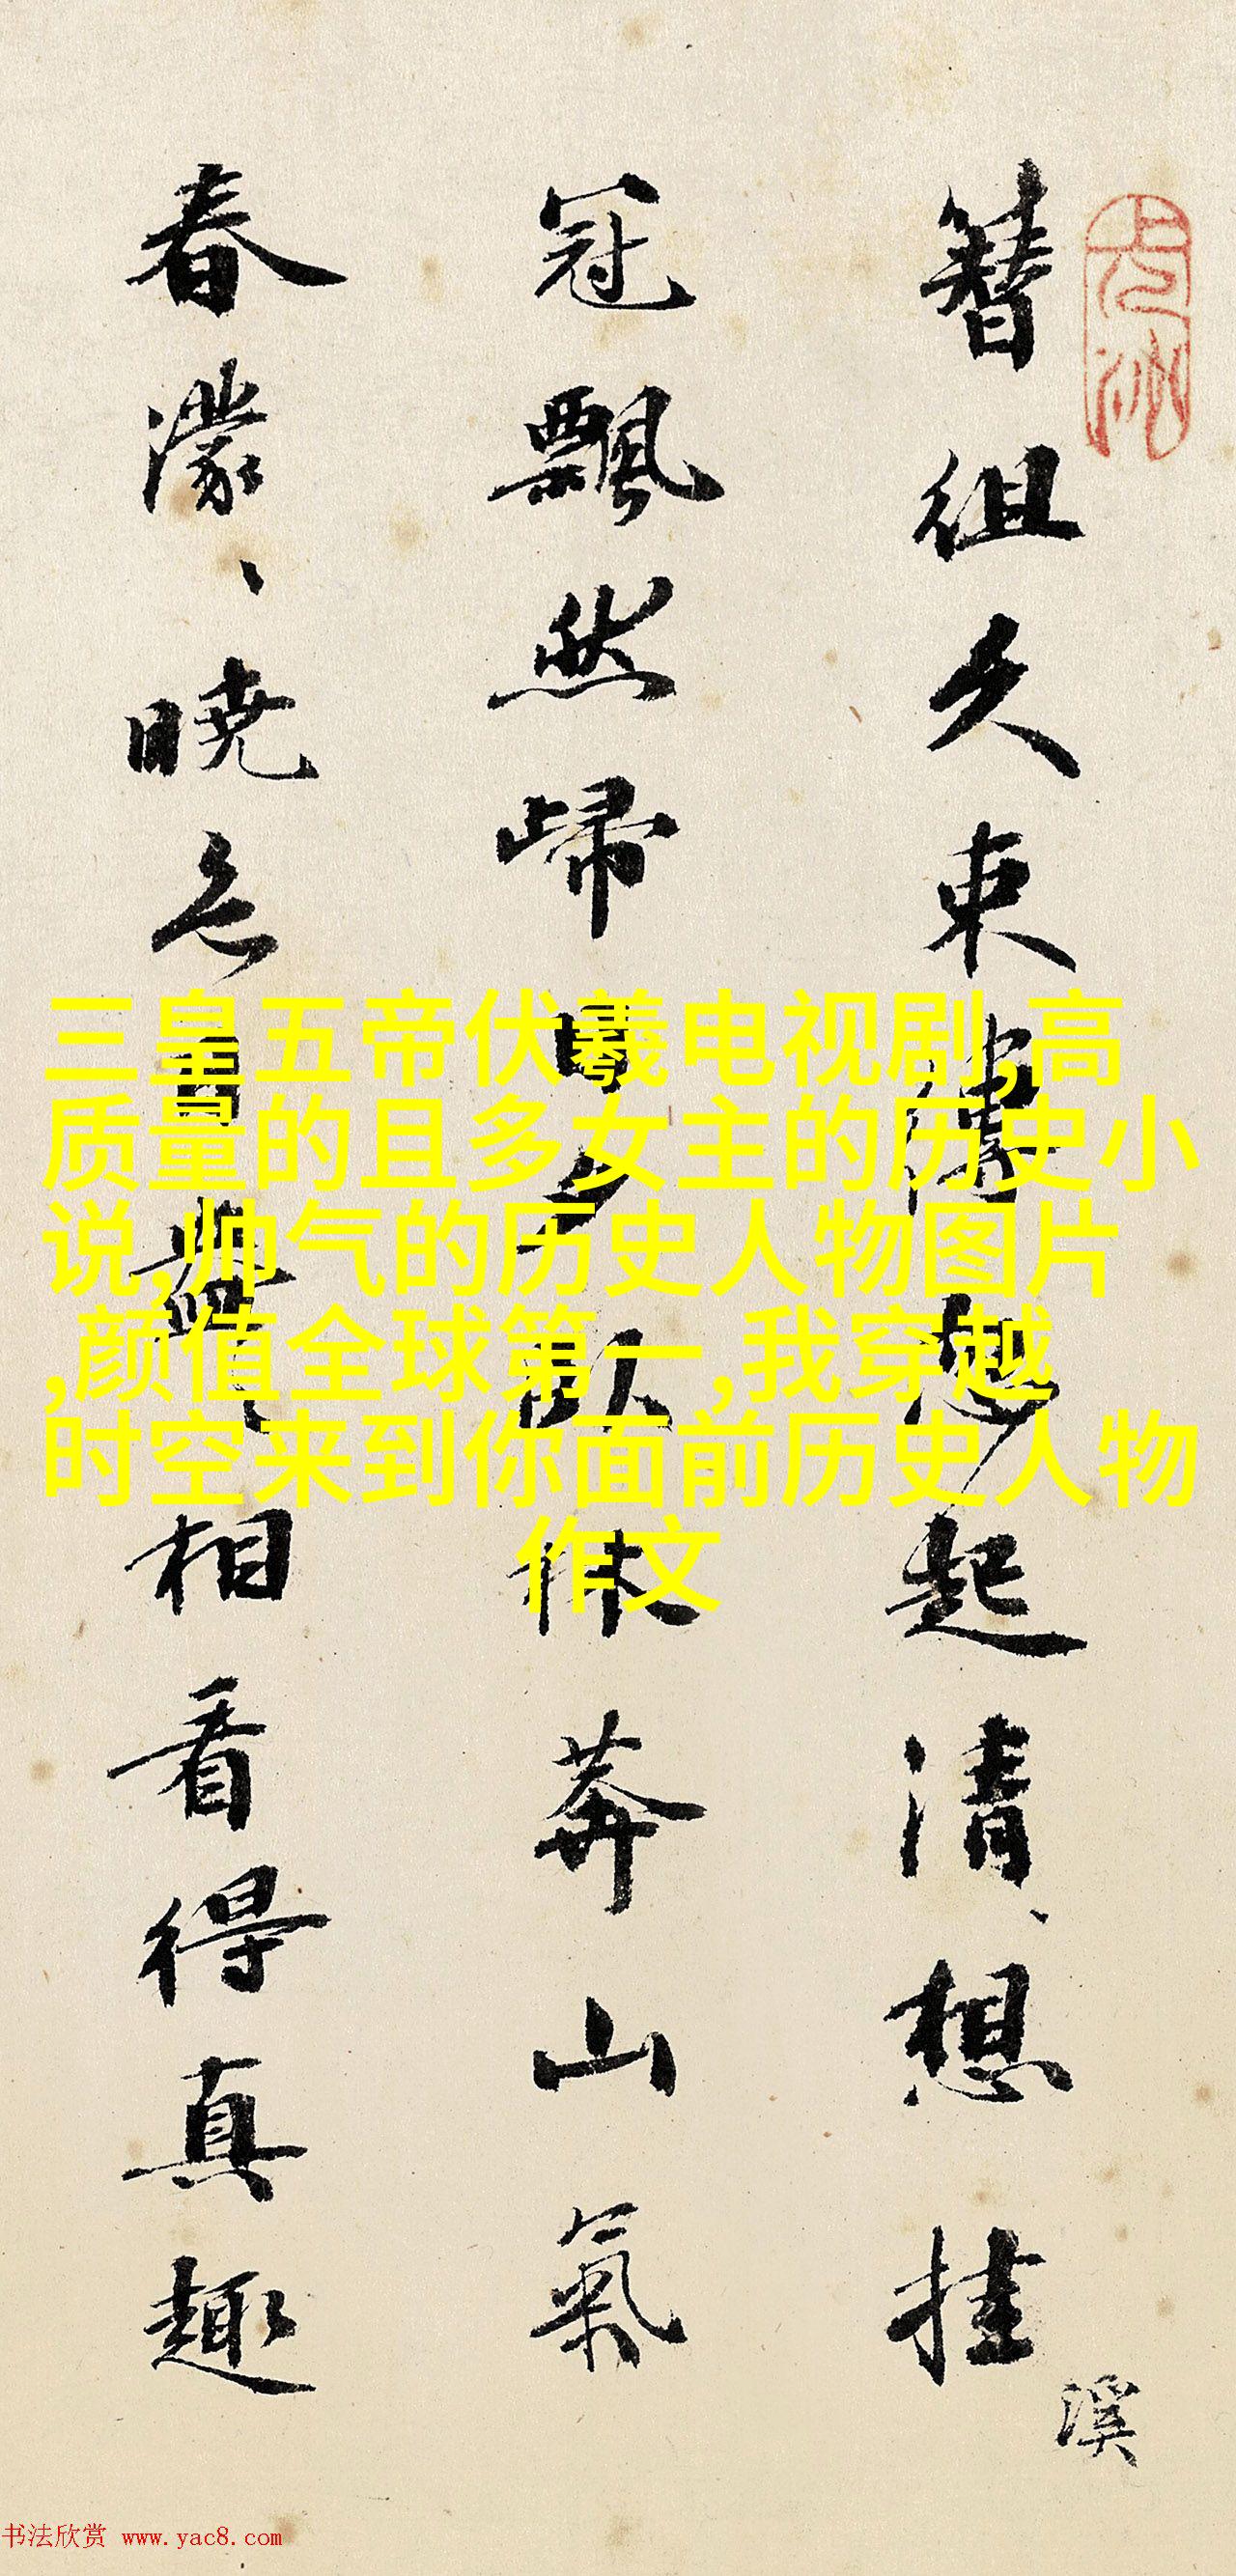 簪組久束忽起清、想挂
溪
冠飄然歸日夕臥林莽山氣
春濛、曉色相看得真趣
三皇五帝伏羲电视剧,高
质量的且多女主的历史小
说,帅气的历史人物图片
,颜值全球第一,我穿越
时空来到你面前历史人物
作文
书法欣赏 www.yac8.com